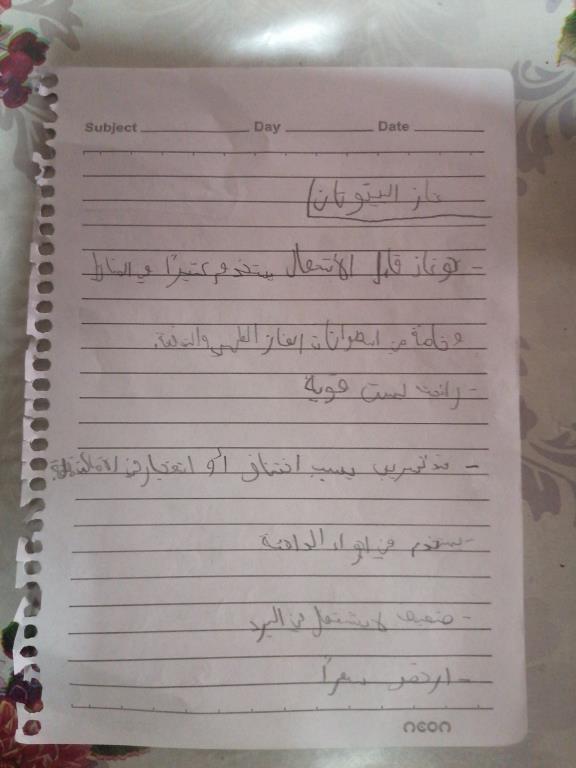 Subject Day Date
غاز البيوتان
- هو غاز قابل الأشتعال يستخدم كثيرًا في المنازل
وخاصة في اسطوانات الغاز الطهي والتدفئة.
- رائحته ليست قوية
- عند تسريب يسبب اختناق أو انفجار في الأماكن المغلقة
- يستخدم في اجواء الدافئة
- ضعيف لا يشتعل في البرد
- ارخص سعرًا
neon